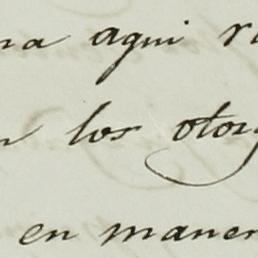 aqui
los otorg
en maner